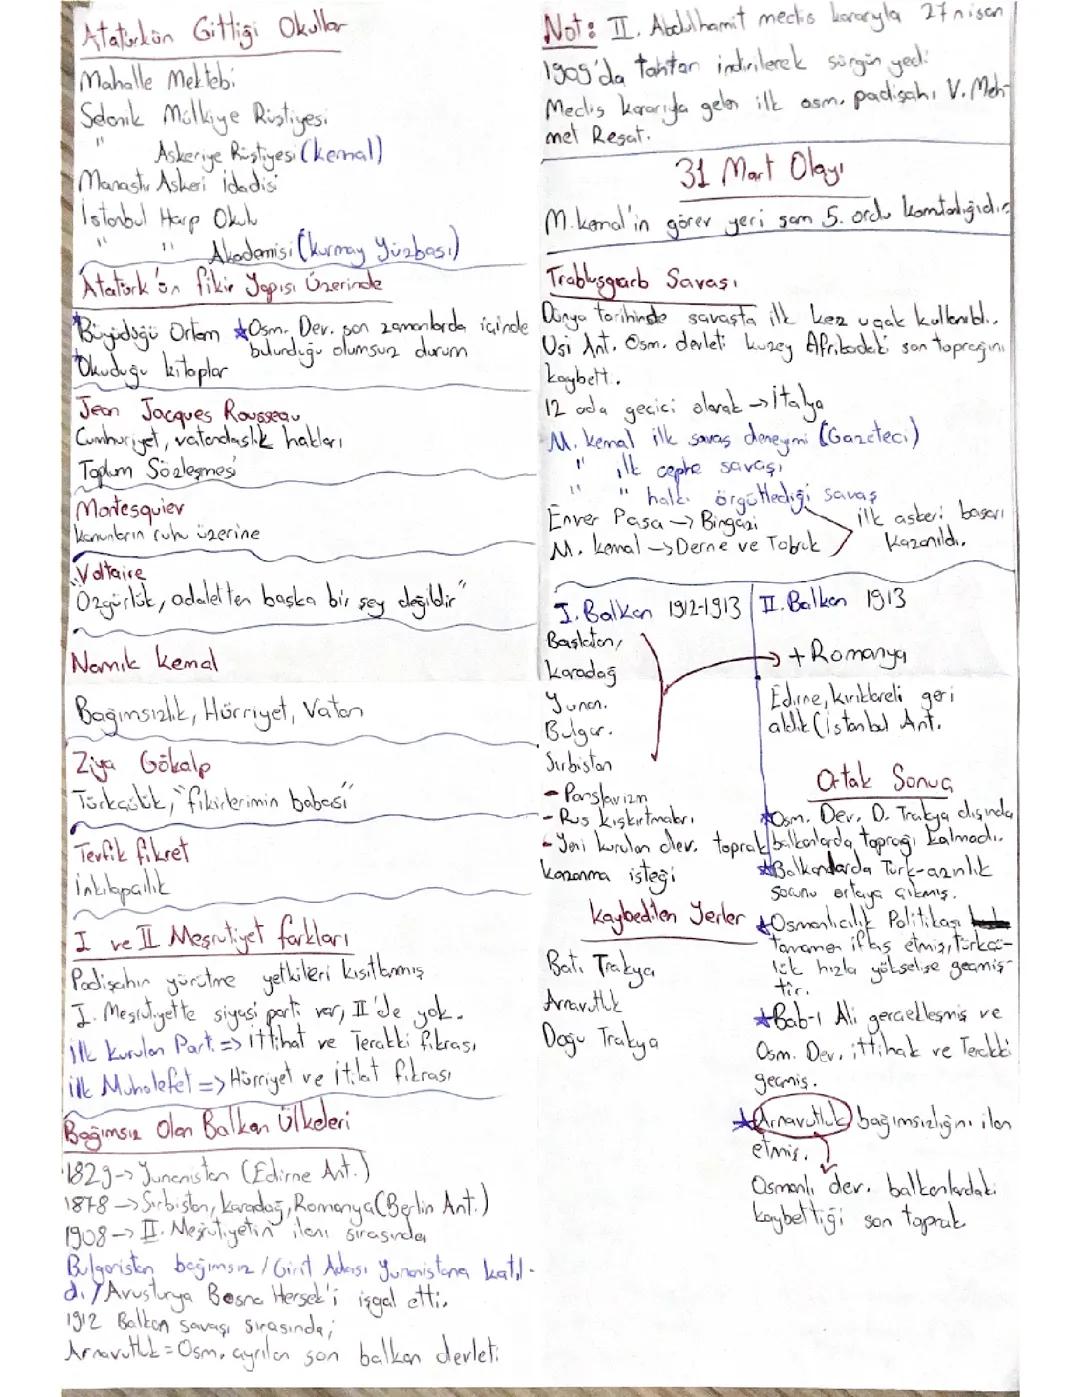 Atatürkün Gittiği Okullar
Mahalle Mektebi
Selanik Mülkiye Rüştiyesi
" Askeriye Rüştiyesi (kemal)
Manastır Askeri idadisi
İstanbul Harp Okulu
" " Akademisi (kurmay Yüzbaşı)
Atatürk'ün fikir Yapısı Üzerinde
Büyüdüğü Ortam ★Osm. Dev. son zamanlarda içinde
bulunduğu olumsuz durum
Okuduğu kitaplar
Jean Jacques Rousseau
Cumhuriyet, vatandaşlık hakları
Toplum Sözleşmesi
Montesquiev
Kanunların ruhu üzerine
Voltaire
"Özgürlük, adaletten başka bir şey değildir"
Namık kemal
Bağımsızlık, Hürriyet, Vatan
Ziya Gökalp
Türkçülük, "fikirlerimin babası"
Tevfik fikret
inkılapçılık
I ve II Meşrutiyet farkları
Padişahın yürütme yetkileri kısıtlanmış
I. Meşrutiyette siyasi parti var, II'de yok.
ilk kurulan Parti => ittihat ve Terakki fıkrası
ilk Muhalefet => Hürriyet ve itilat fıkrası
Bağımsız Olan Balkan Ülkeleri
1829-> Yunanistan (Edirne Ant.)
1878 -> Sırbistan, karadağ, Romanya (Berlin Ant.)
1908-> II. Meşrutiyetin ilanı sırasında
Bulgaristan bağımsız / Girit Adası Yunanistana katıl-
dı. / Avusturya Bosna Hersek'i işgal etti.
1912 Balkan savaşı sırasında;
Arnavutluk = Osm. ayrılan son balkan devleti
Not: II. Abdulhamit meclis kararıyla 27 nisan
1909'da tahtan indirilerek sürgün yedi
Meclis kararıyla gelen ilk osm. padişahı V. Meh-
met Reşat.
31 Mart Olayı
M. kemal'in görev yeri şam 5. ordu komtanlığıdır
Trablusgarb Savaşı
Dünya tarihinde savaşta ilk kez uçak kullanıldı.
Uşi Ant. Osm. devleti kuzey Afrikadaki son toprağını
kaybetti.
12 ada geçici olarak -> italya
M. kemal ilk savaş deneyimi (Gazeteci)
" ilk cephe savaşı
" " halkı örgütlediği savaş
Enver Paşa -> Bingazi
M. kemal -> Derne ve Tobruk
ilk askeri başarı
kazanıldı.
I. Balkan 1912-1913
Başlatan,
karadağ
Yunan.
Bulgar.
Sırbistan
- Panslavizm
- Rus kışkırtmaları
- Yeni kurulan dev. toprak
kazanma isteği
kaybedilen Yerler
Batı Trakya
Arnavutluk
Doğu Trakya
II. Balkan 1913
+ Romanya
Edirne, kırıklareli geri
aldık (istanbul Ant.
Ortak Sonuç
★Osm. Dev. D. Trakya dışında
balkanlarda toprağı kalmadı.
★Balkanlarda Türk-azınlık
sorunu ortaya çıkmış.
★Osmanlıcılık Politikası
tamamen iflas etmiş, türkçü-
lük hızla yükselişe geçmiş-
tir.
★Bab-ı Ali gerçekleşmiş ve
Osm. Dev. ittihak ve Terakki
geçmiş.
★Arnavutluk bağımsızlığını ilan
etmiş.
Osmanlı dev. balkanlardaki
kaybettiği son toprak